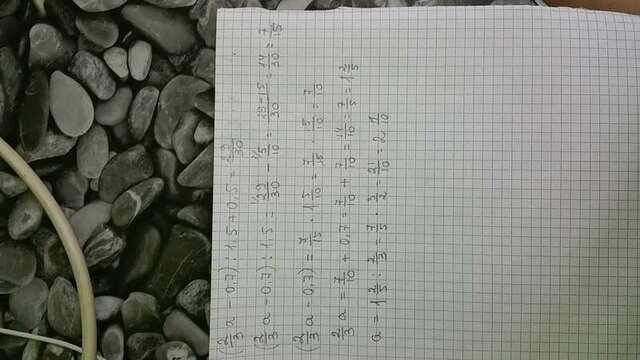 (2/3 a - 0,7) : 1,5 + 0,5 = 29/30
(2/3 a - 0,7) : 1,5 = 29/30 - 5/10 = 29-15/30 = 14/30 = 7/15
(2/3 a - 0,7) = 7/15 · 1 5/10 = 7/15 · 15/10 = 7/10
2/3 a = 7/10 + 0,7 = 7/10 + 7/10 = 14/10 = 7/5 = 1 2/5
a = 1 2/5 : 2/3 = 7/5 · 3/2 = 21/10 = 2 1/10